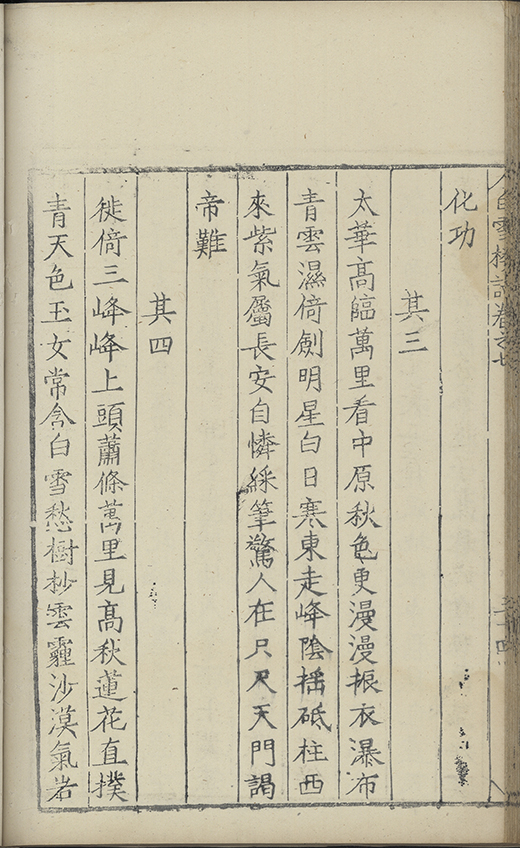 白雪樓詩卷之七
化功
其三
太華高臨萬里看中原秋色更漫漫振衣瀑布
青雲濕倚劍明星白日寒東走峰陰搖砥柱西
來紫氣屬長安自憐綵筆驚人在只尺天門謁
帝難
其四
徙倚三峰峰上頭蕭條萬里見高秋蓮花直撲
青天色玉女常含白雪愁樹杪雲霾沙漠氣岩